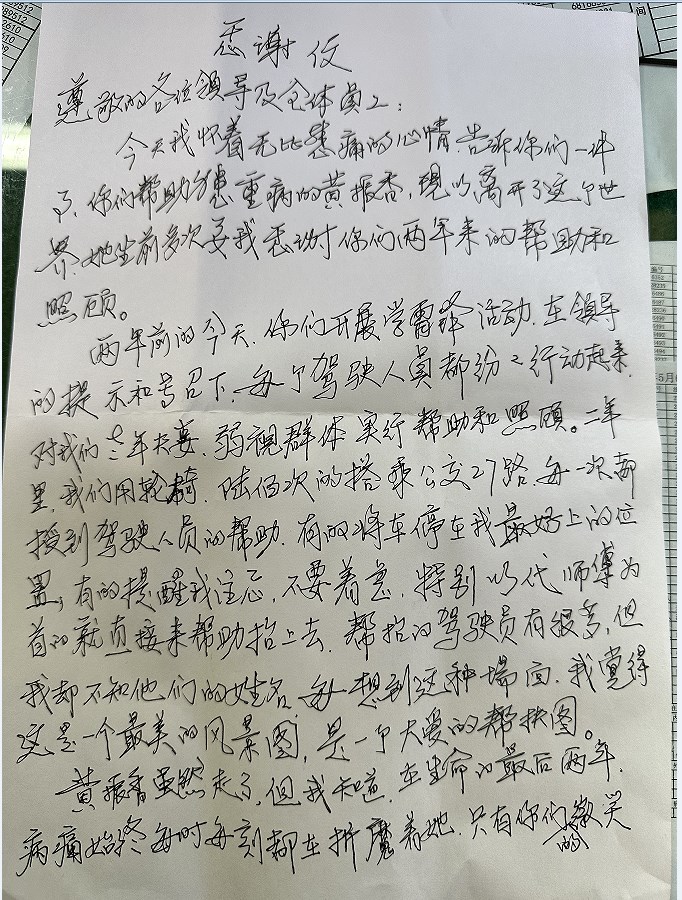 感谢信
尊敬的各位领导及全体员工:
今天我怀着无比悲痛的心情,告诉你们一件
了,你们帮助身患重病的黄振香,现以离开了这个世
界,她生前多次要我感谢对你们两年来的帮助和
照顾。
两年前的今天,你们开展学雷锋活动,在领导
的提示和号召下,每个驾驶人员都纷纷行动起来
对我们老年夫妻,弱视群体实行帮助和照顾。二年
里,我们用轮椅,陆佰次的搭乘公交27路,每一次都
授到驾驶人员的帮助,有的将车停在我最好上的位
置,有的提醒我注意,不要着急,特别以代师傅为
首的就直接来帮助抬上去,帮抬的驾驶员有很多,但
我却不知他们的姓名,每想到这种场面,我觉得
这是一个最美的风景图,是一个大爱的帮扶图。
黄振香虽然走了,但我知道,在生命的最后两年,
病痛始终每时每刻都在折魔着她,只有你们的微笑